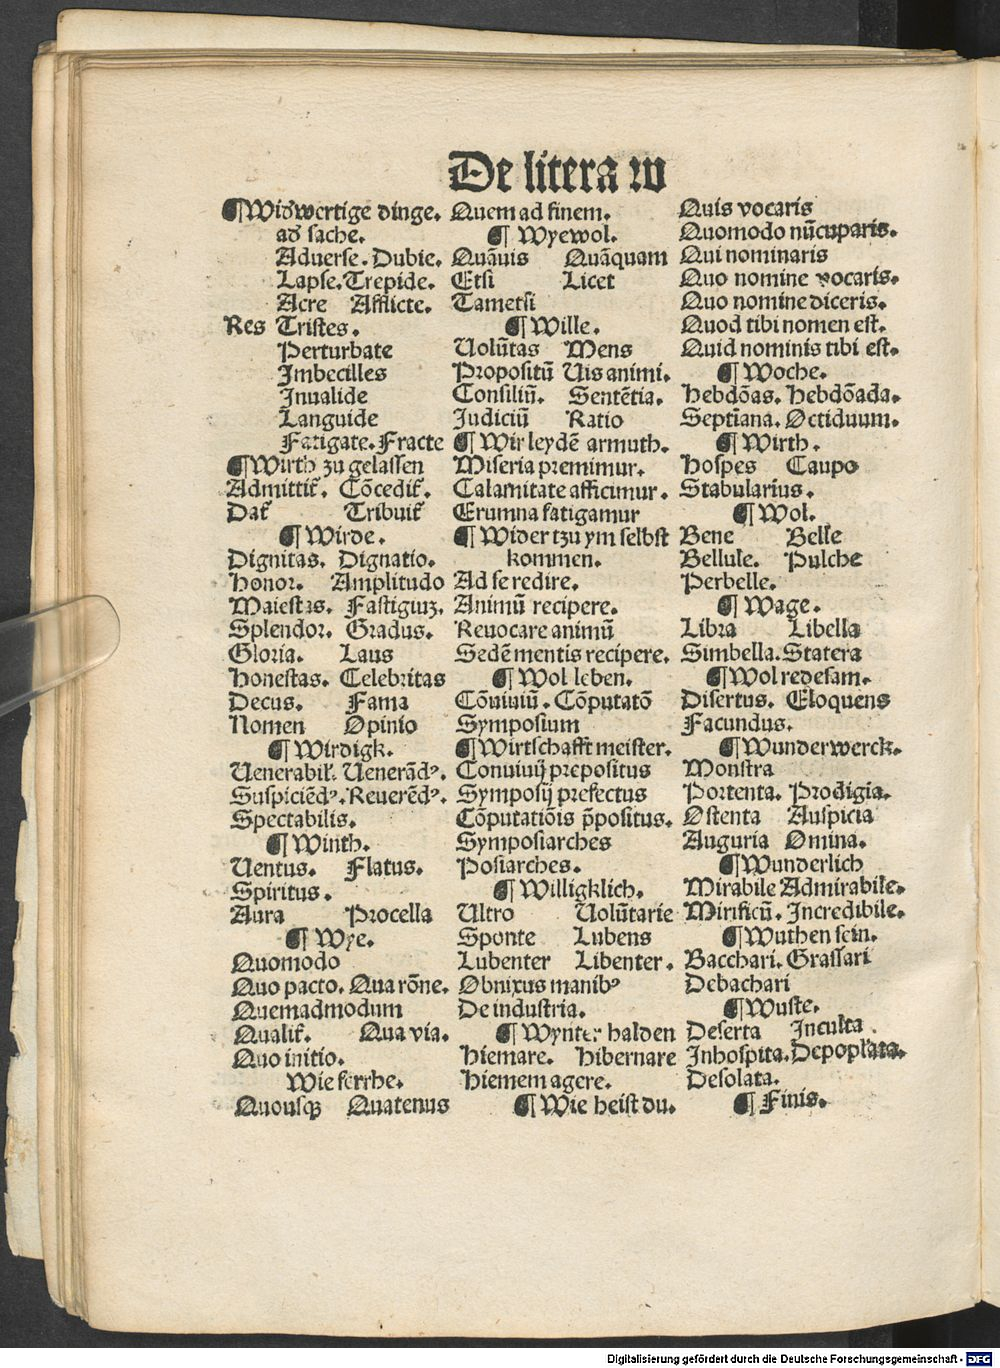 De litera w
¶ Wid̛wertige dinge.
ad̛ sache.
Aduerse. Dubie.
Lapse. Trepide.
Acre Afflicte.
Res Tristes.
Perturbate
Imbecilles
Inualide
Languide
Fatigate. Fracte
¶ Wirth zu gelassen
Admittit̛. Cōcedit̛.
Dat̛ Tribuit̛
¶ Wirde.
Dignitas. Dignatio.
Honor. Amplitudo
Maiestas. Fastigiuꝫ.
Splendor. Gradus.
Gloria. Laus
Honestas. Celebritas
Decus. Fama
Nomen Opinio
¶ Wirdigk.
Uenerabil̛. Uenerādꝰ.
Suspiciēdꝰ. Reuerēdꝰ.
Spectabilis.
¶ Winth.
Uentus. Flatus.
Spiritus.
Aura Procella
¶ Wye.
Quomodo
Quo pacto. Qua rōne.
Quemadmodum
Qualit̛. Qua via.
Quo initio.
Wie ferrhe.
Quousqꝫ Quatenus
Quem ad finem.
¶ Wyewol.
Quāuis Quāquam
Etsi Licet
Tametsi
¶ Wille.
Uolūtas Mens
Propositū Uis animi.
Consiliū. Sentētia.
Judiciū Ratio
¶ Wir leydē armuth.
Miseria premimur.
Calamitate afficimur.
Erumna fatigamur
¶ Wider tzu ym selbst
kommen.
Ad se redire.
Animū recipere.
Reuocare animū
Sedē mentis recipere.
¶ Wol leben.
Cōuiuiū. Cōputatō
Symposium
¶ Wirtschafft meister.
Conuiuij prepositus
Symposij prefectus
Cōputatiōis p̄positus.
Symposiarches
Posiarches.
¶ Willigklich.
Ultro Uolūtarie
Sponte Lubens
Lubenter Libenter.
Obnixus manibꝰ
De industria.
¶ Wynter halden
Hiemare. Hibernare
Hiemem agere.
¶ Wie heist du.
Quis vocaris
Quomodo nūcuparis.
Qui nominaris
Quo nomine vocaris.
Quo nomine diceris.
Quod tibi nomen est.
Quid nominis tibi est.
¶ Woche.
Hebdōas. Hebdōada.
Septīana. Octiduum.
¶ Wirth.
Hospes Caupo
Stabularius.
¶ Wol.
Bene Belle
Bellule. Pulche
Perbelle.
¶ Wage.
Libra Libella
Simbella. Statera
¶ Wol redesam.
Disertus. Eloquens
Facundus.
¶ Wunderwerck.
Monstra
Portenta. Prodigia.
Ostenta Auspicia
Auguria Omina.
¶ Wunderlich
Mirabile Admirabile.
Mirificū. Incredibile.
¶ Wuthen sein.
Bacchari. Grassari
Debachari
¶ Wuste.
Deserta Inculta.
Inhospita. Depoplata.
Desolata.
¶ Finis.
Digitalisierung gefördert durch die Deutsche Forschungsgemeinschaft - DFG